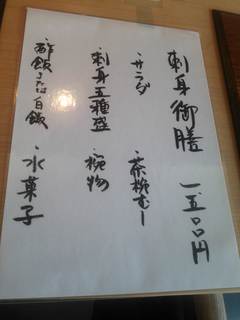 刺身御膳 一五〇〇円
・サラダ ・茶椀むし
・刺身五種盛 ・椀物
・酢飯または白飯 ・水菓子